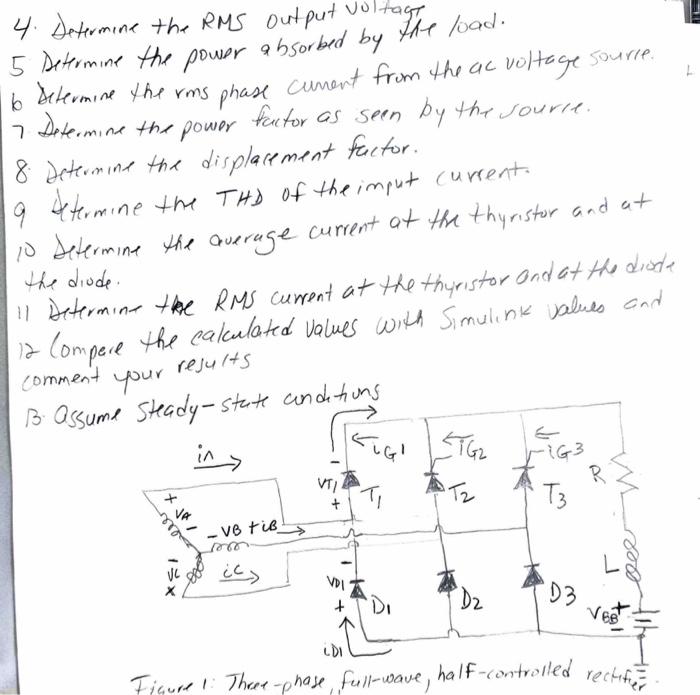 4. Determine the RMS output voltage
5 Determine the power absorbed by the load.
6 Determine the rms phase current from the ac voltage source.
7 Determine the power factor as seen by the source.
8 Determine the displacement factor.
9 determine the THD of the input current.
10 Determine the average current at the thyristor and at
the diode.
11 Determine the RMS current at the thyristor and at the diode
12 Compare the calculated values with Simulink values and
comment your results
13. assume steady-state conditions
in
iG1
iG2
iG3
VT1
T1
T2
T3
R
+
VA
-
- VB + iB
VC
iC
L
VD1
D1
D2
D3
VBB
+
-
iD1
Figure 1: Three-phase, full-wave, half-controlled rectifier